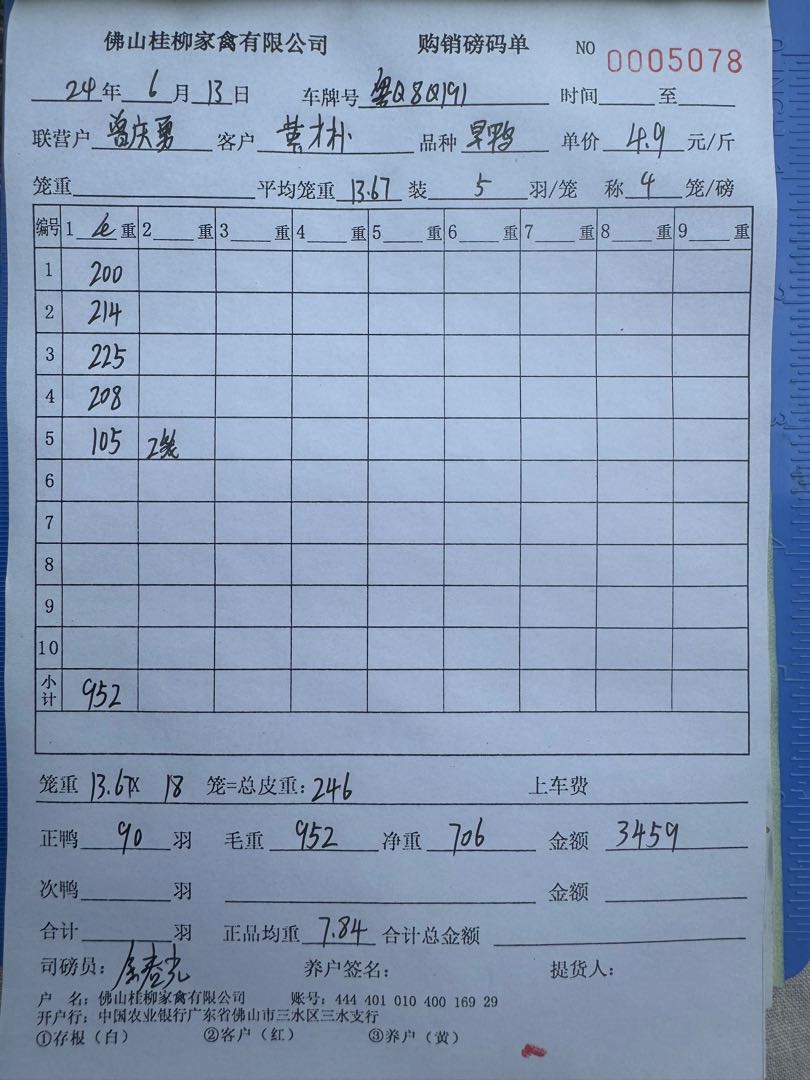 佛山桂柳家禽有限公司 购销磅码单 NO 0005078
24年 6月 13日 车牌号 粤Q8Q191 时间 至
联营户 曾庆勇 客户 黄才朴 品种 旱鸭 单价 4.9 元/斤
笼重 平均笼重 13.67 装 5 羽/笼 称 4 笼/磅
编号 1 重 2 重 3 重 4 重 5 重 6 重 7 重 8 重 9 重
1 200
2 214
3 225
4 208
5 105 2笼
6
7
8
9
10
小计 952
笼重 13.67X 18 笼=总皮重：246 上车费
正鸭 90 羽 毛重 952 净重 706 金额 3459
次鸭 羽 金额
合计 羽 正品均重 7.84 合计总金额
司磅员： 养户签名： 提货人：
户 名：佛山桂柳家禽有限公司 账号：444 401 010 400 169 29
开户行：中国农业银行广东省佛山市三水区三水支行
①存根（白） ②客户（红） ③养户（黄）